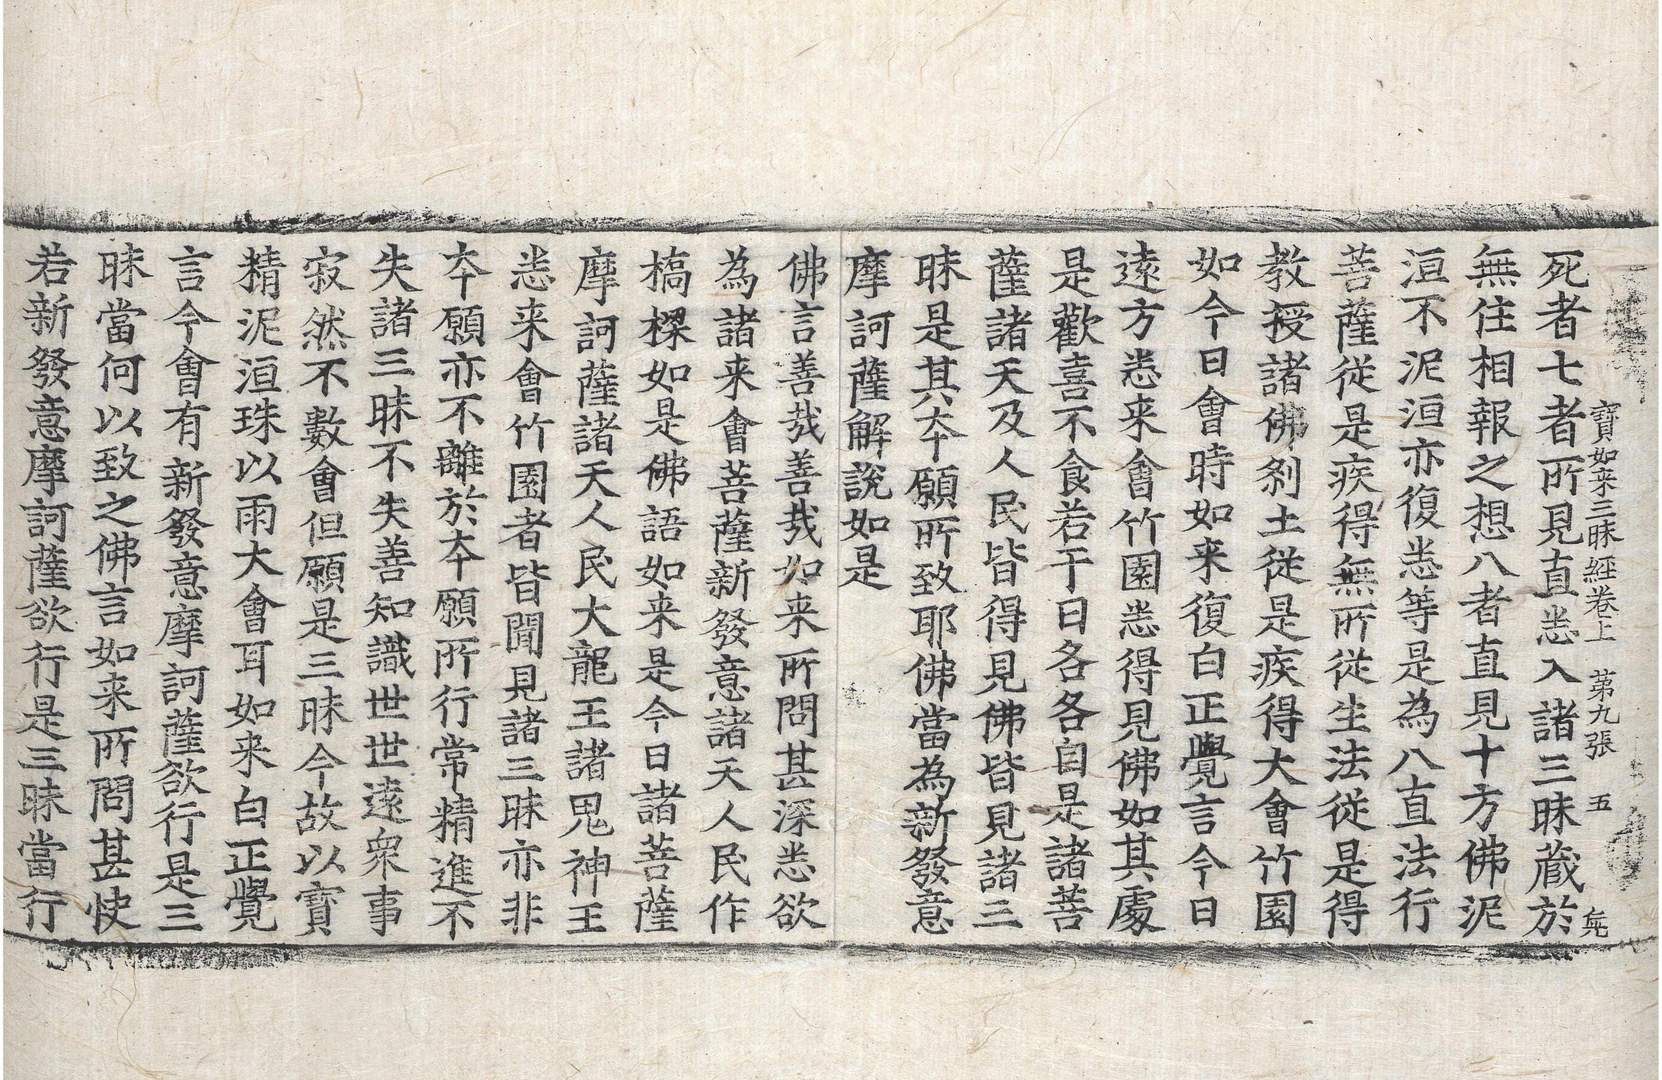 寶如来三昧經卷上　第九張　五
死者七者所見直悉入諸三昧蔵於
無住相報之想八者直見十方佛泥
洹不泥洹亦復悉等是為八直法行
菩薩従是疾得無所従生法従是得
教授諸佛刹土従是疾得大會竹園
如今日會時如来復白正覺言今日
遠方悉来會竹園悉得見佛如其處
是歡喜不食若干日各各自是諸菩
薩諸天及人民皆得見佛皆見諸三
昧是其夲願所致耶佛當為新發意
摩訶薩解說如是
佛言善㢤善㢤如来所問甚深悉欲
為諸来會菩薩新發意諸天人民作
橋樑如是佛語如来是今日諸菩薩
摩訶薩諸天人民大龍王諸鬼神王
悉来會竹園者皆聞見諸三昧亦非
夲願亦不離於夲願所行常精進不
失諸三昧不失善知識世世遠衆事
寂然不數會但願是三昧今故以寶
精泥洹珠以雨大會耳如来白正覺
言今會有新發意摩訶薩欲行是三
昧當何以致之佛言如来所問甚快
若新發意摩訶薩欲行是三昧當行